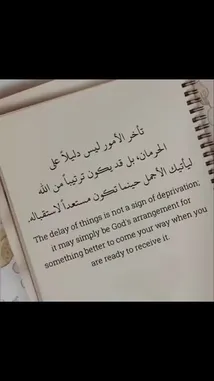 تأخر الأمور ليس دليلاً على
الحرمان، بل قد يكون ترتيباً من الله
ليأتيك الأجمل حينما تكون مستعداً لاستقباله.
The delay of things is not a sign of deprivation;
it may simply be God's arrangement for
something better to come your way when you
are ready to receive it.